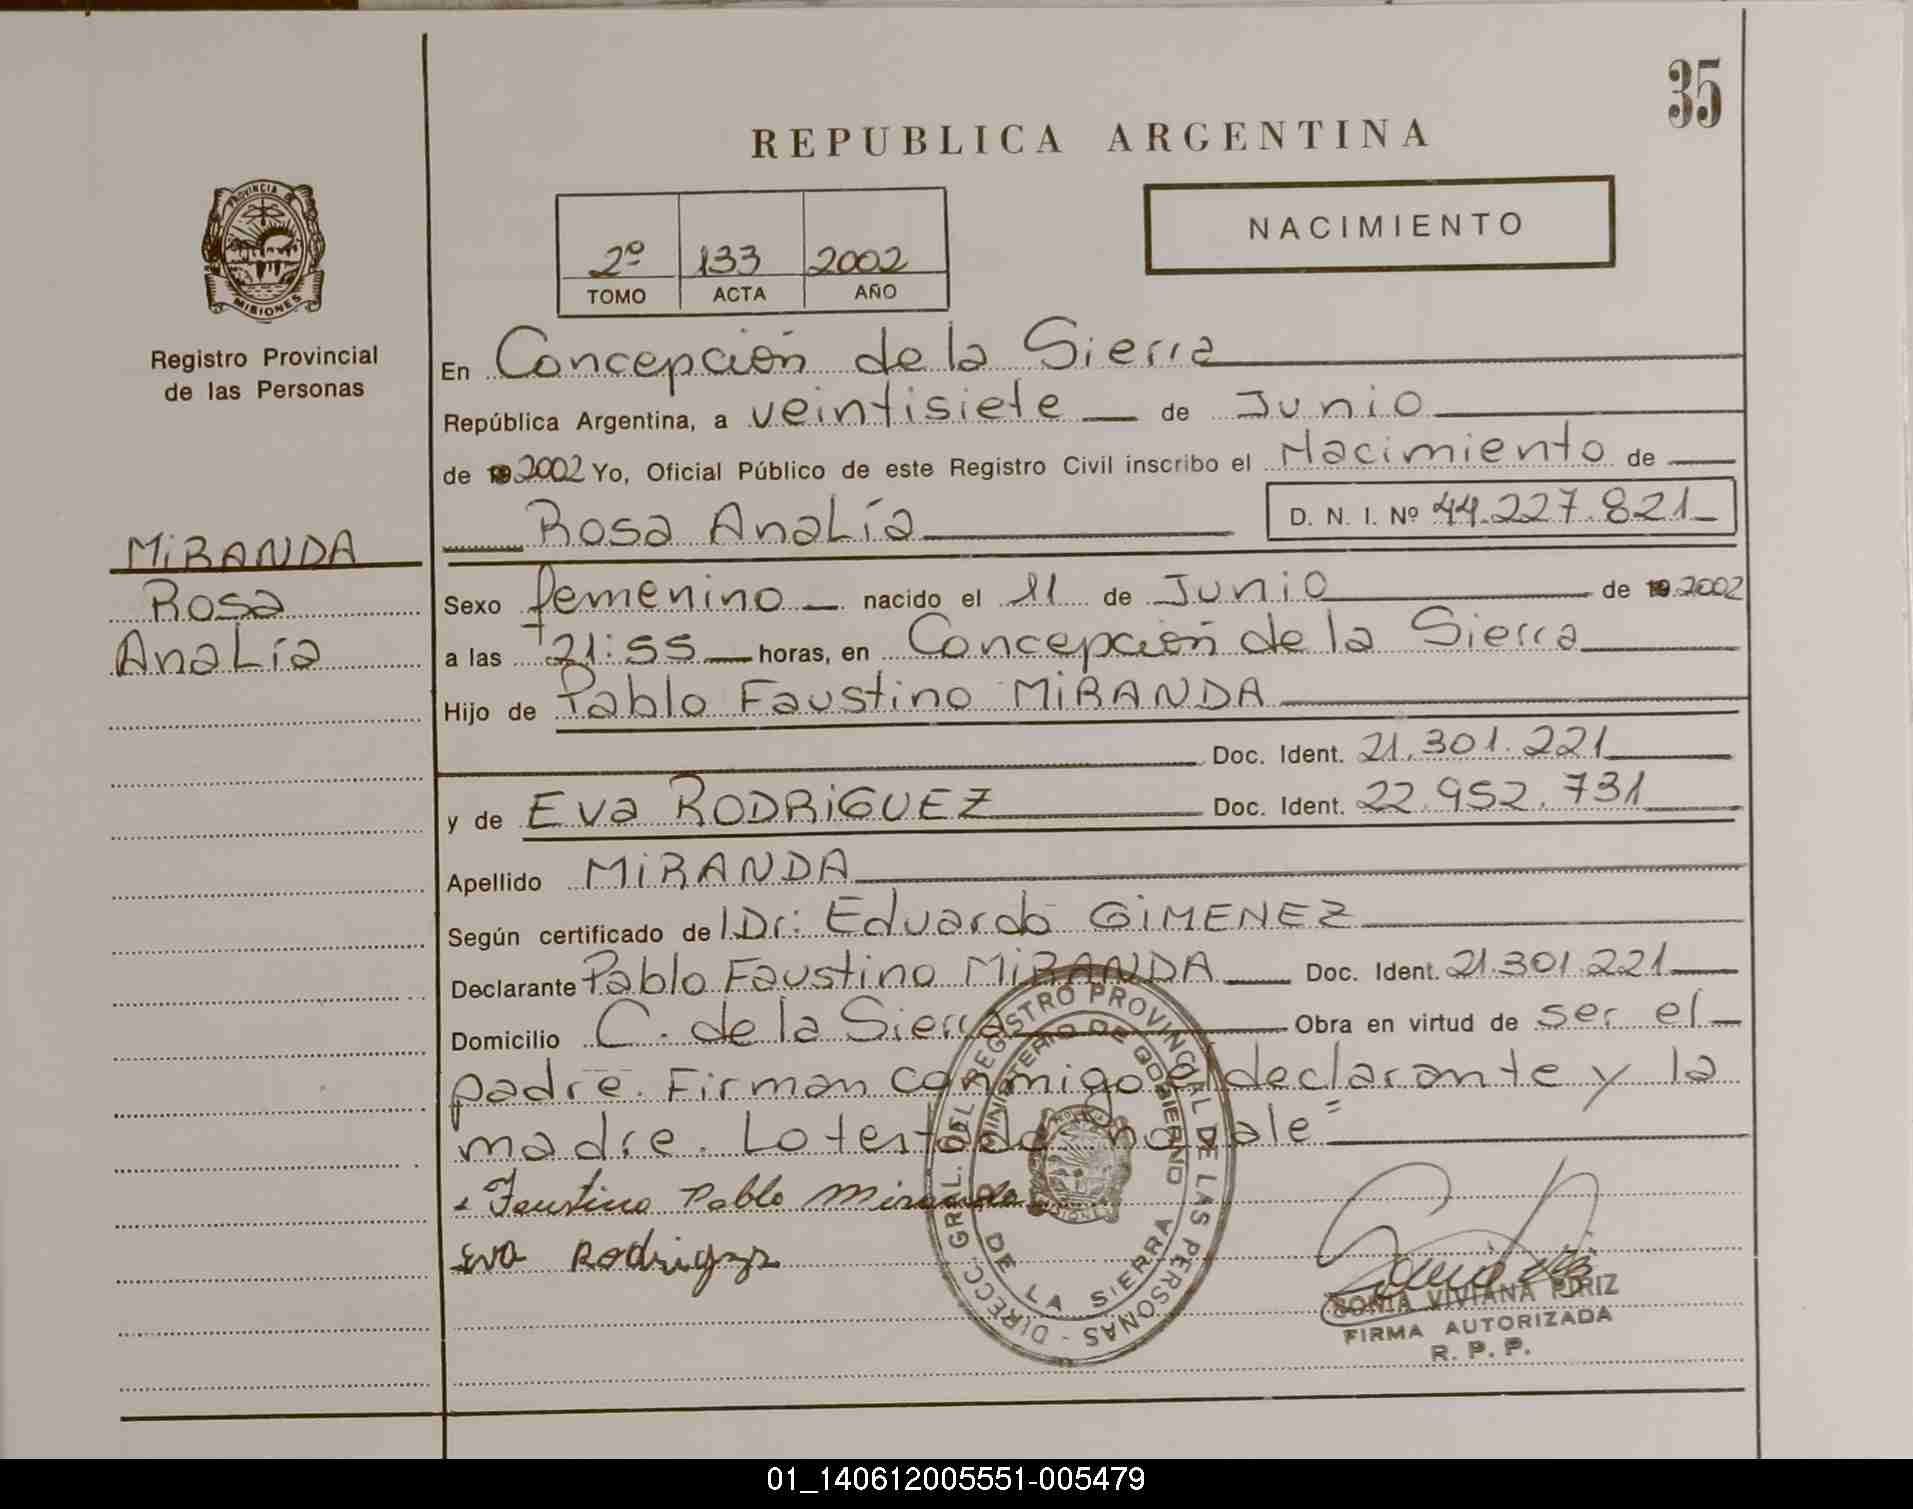 35
REPUBLICA ARGENTINA
PROVINCIA
MISIONES
Registro Provincial
de las Personas
2º 133 2002
TOMO ACTA AÑO
NACIMIENTO
En Concepción de la Sierra
República Argentina, a veintisiete de Junio
de 2002 Yo, Oficial Público de este Registro Civil inscribo el Nacimiento de
Rosa Analía D. N. I. Nº 44.227.821
MIRANDA
Rosa
Analía
Sexo femenino nacido el 11 de Junio de 2002
a las 21:55 horas, en Concepción de la Sierra
Hijo de Pablo Faustino MIRANDA
Doc. Ident. 21.301.221
y de Eva RODRIGUEZ Doc. Ident. 22.952.731
Apellido MIRANDA
Según certificado del Dr: Eduardo GIMENEZ
Declarante Pablo Faustino MIRANDA Doc. Ident. 21.301.221
Domicilio C. de la Sierra Obra en virtud de ser el
padre. Firman conmigo el declarante y la
madre. Lo testado no vale=
Faustino Pablo Miranda
Eva Rodrigez
DIRECC. GRAL. DEL REGISTRO PROVINCIAL DE LAS PERSONAS -
MINISTERIO DE GOBIERNO
DE LA SIERRA
SONIA VIVIANA PIRIZ
FIRMA AUTORIZADA
R. P. P.
01_140612005551-005479